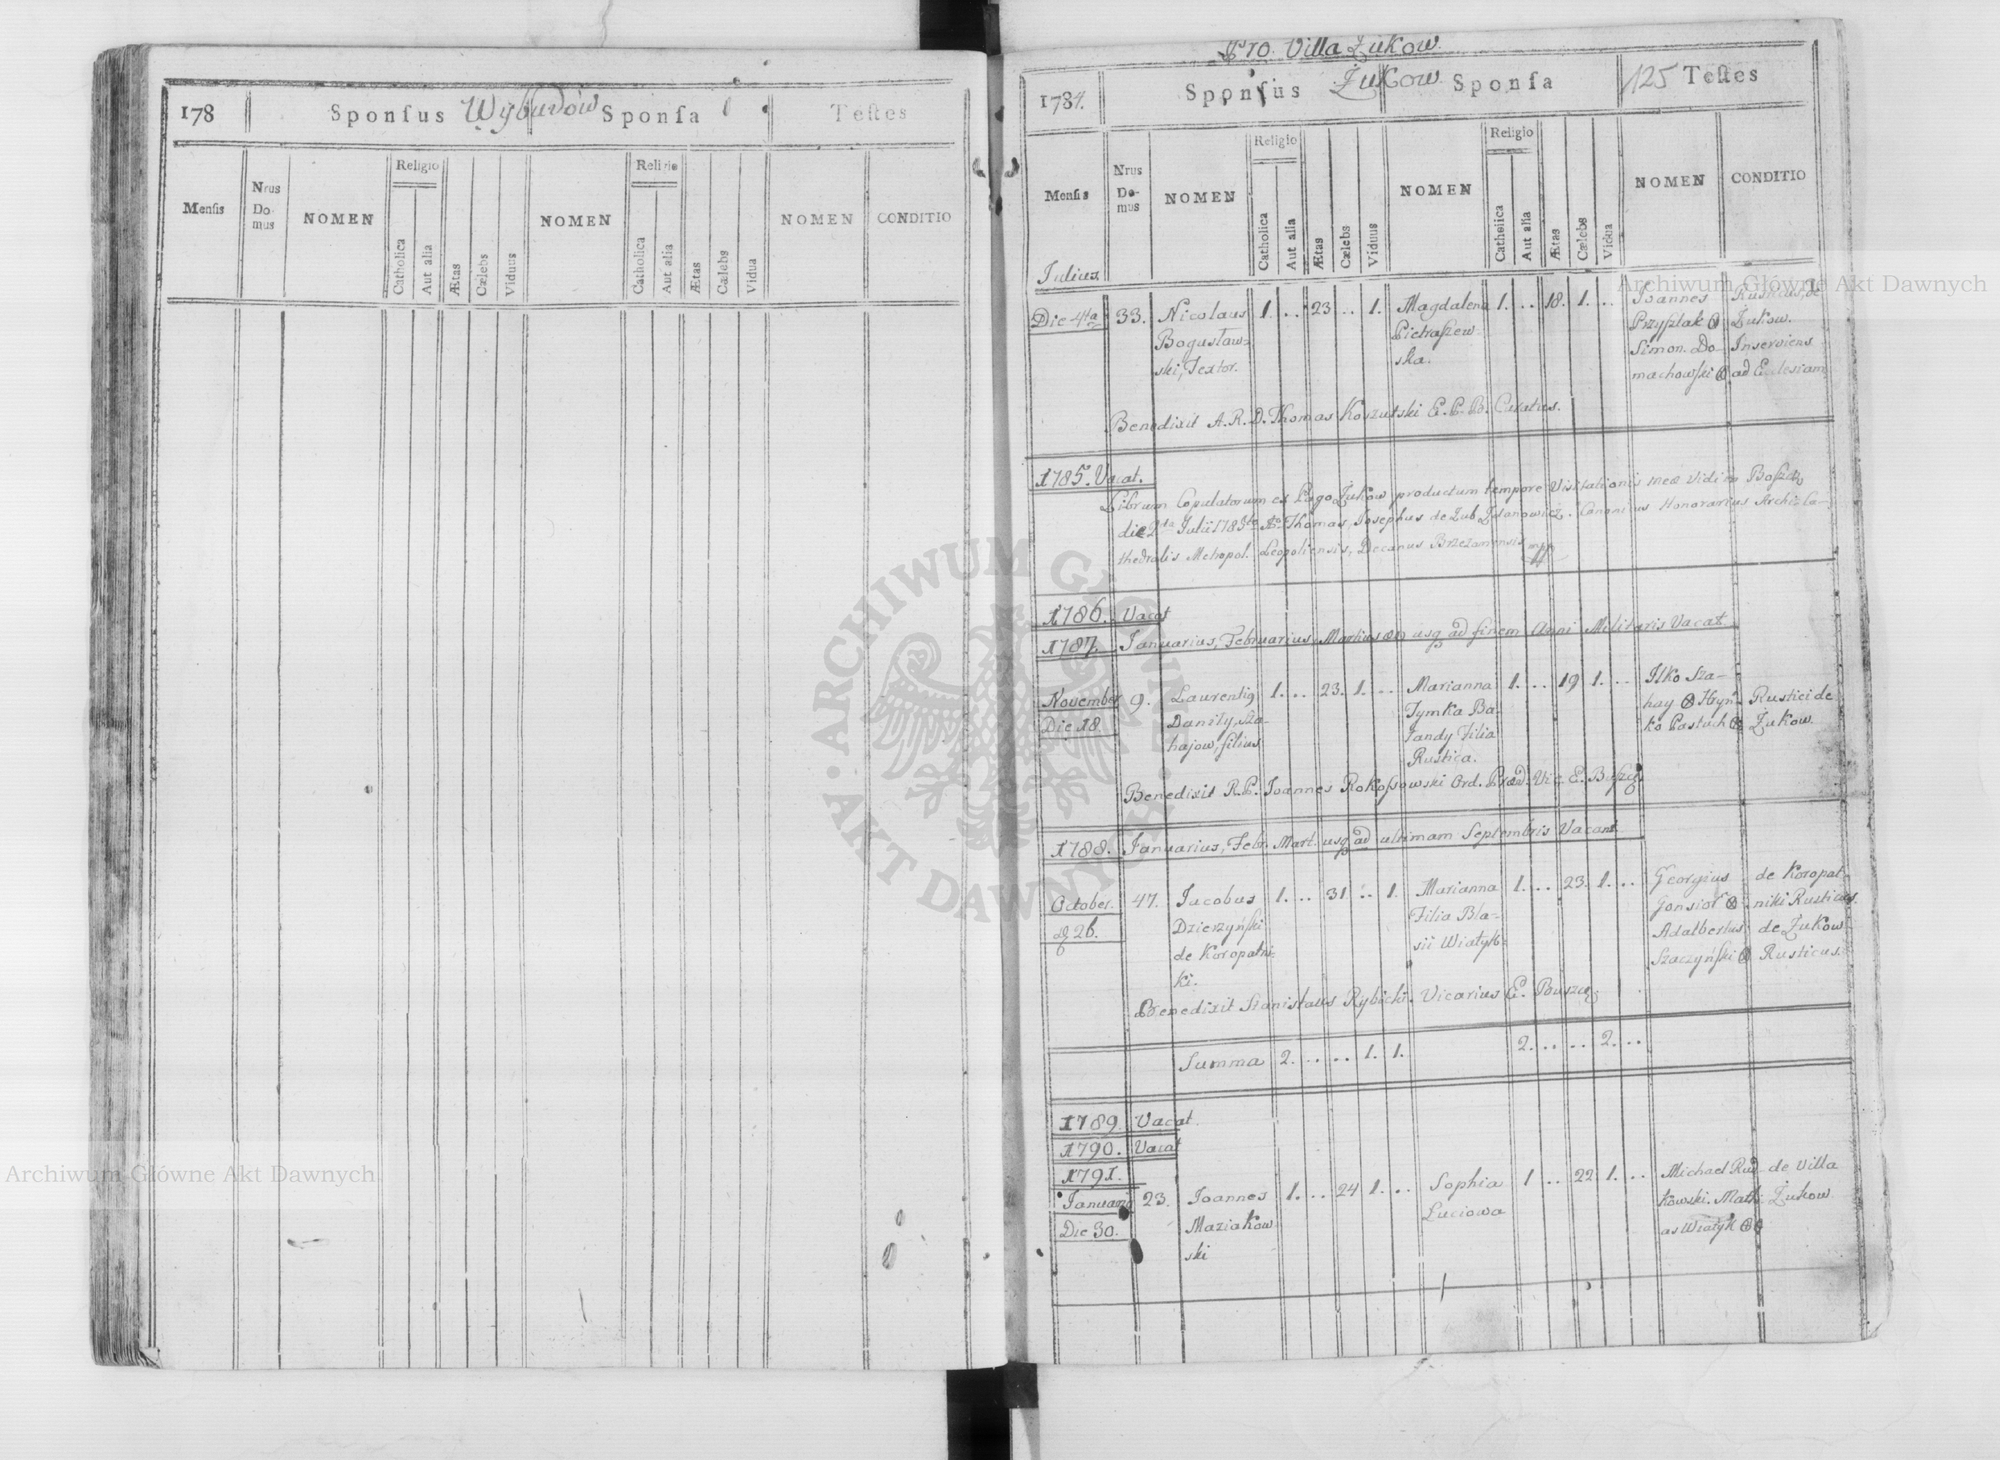 178 Sponsus Wybudów Sponsa Testes
Mensis Nrus Domus NOMEN Religio Catholica Aut alia Ætas Cælebs Viduus NOMEN Religio Catholica Aut alia Ætas Cælebs Vidua NOMEN CONDITIO
Pro Villa Żukow
1784. Sponsus Żukow Sponsa 125 Testes
Mensis Nrus Domus NOMEN Religio Catholica Aut alia Ætas Cælebs Viduus NOMEN Religio Catholica Aut alia Ætas Cælebs Vidua NOMEN CONDITIO
Julius
Die 4ta 33. Nicolaus 1. .. 23 .. 1. Magdalena 1. .. 18. 1. .. Joannes Rusticus, de
Bogusław- Pietraszew Przysztak Żukow.
ski, Textor. ska. Simon Do- Inserviens
machowski ad Ecclesiam
Benedixit A. R. D. Thomas Koszutski E. P. B. Curatus.
1785. Vacat.
Librum Copulatorum ex Pago Żukow productum tempore Visitationis meæ vidi in
die 2da Julii Thomas, Josephus de Canonicus Honorarius Archi-Ca-
thedralis Metropol. Leopoliensis, Decanus Brzezanensis mpp
1786. Vacat
1787. Januarius, Februarius, Martius usq ad finem Anni Militaris Vacat.
November 9. Laurentig 1. .. 23. 1. .. Marianna 1. .. 19 1. .. Ilko Sza-
Die 18. Daniły, Sza- Tymka Ba- hay Hyn- Rustici de
hajow, filius Tandy Filia ko Pastuch Żukow.
Rustica.
Benedixit R. P. Joannes Rokossowski Ord. Præd. Vic E.
1788. Januarius, Febr. Mart. usq ad ultimam Septembris Vacant
October. 47. Jacobus 1. .. 31. .. 1. Marianna 1. .. 23. 1. .. Georgius de Koropat-
26. Dzierzyński Filia Bla- Gonsior niki Rusticus.
de Koropatni- sii Wiatyk Adalbertus de Żukow
ki. Szaczyński Rusticus.
Benedixit Stanislaus Rybicki. Vicarius E.
Summa 2. .. .. 1. 1. 2. .. .. 2. ..
1789. Vacat.
1790. Vacat
1791.
Januarii 23. Joannes 1. .. 24 1. .. Sophia 1 .. 22 1. .. Michael Rud- de Villa
Die 30. Maziakow Luciowa kowski. Mathi- Żukow
ski as Wiatyk
Archiwum Główne Akt Dawnych
Archiwum Główne Akt Dawnych
ARCHIWUM GŁÓWNE AKT DAWNYCH